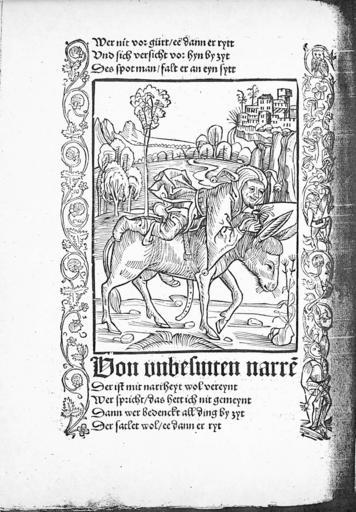 Wer nit vor gürt / ee dann er rytt
Vnd sich versicht vor hyn by zyt
Des spot man / falt er an eyn sytt
Von vnbesunten narrē
Der ist mit narrheyt wol vereynt
Wer spricht / das hett ich nit gemeynt
Dann wer bedenckt all ding by zyt
Der satlet wol / ee dann er ryt